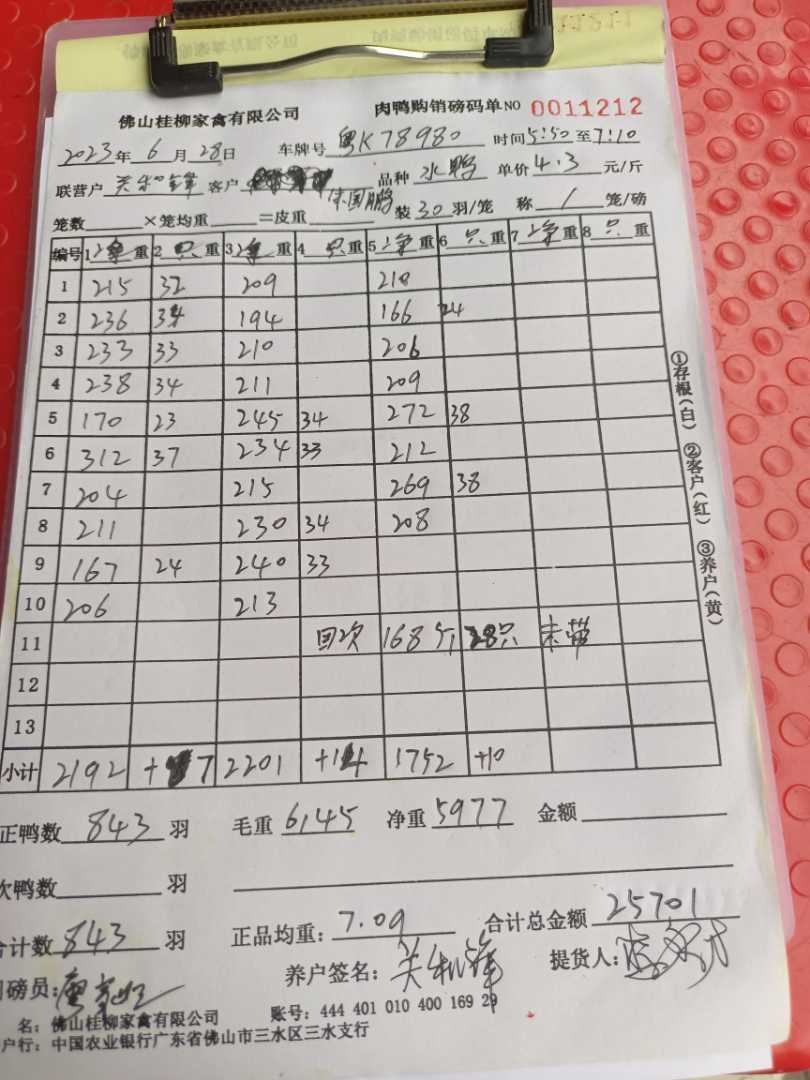 佛山桂柳家禽有限公司 肉鸭购销磅码单 NO 0011212
2023年6月28日 车牌号 粤K78980 时间5:50至7:10
联营户 关和锋 客户 品种 水鸭 单价4.3元/斤
笼数 ×笼均重 =皮重 装30羽/笼 称 1 笼/磅
编号 1 重 2 只 重 3 重 4 只 重 5 重 6 只 重 7 重 8 只 重
1 215 32 209 218
2 236 34 194 166 24
3 233 33 210 206
4 238 34 211 209
5 170 23 245 34 272 38
6 312 37 234 33 212
7 204 215 269 38
8 211 230 34 208
9 167 24 240 33
10 206 213
11 回次 168斤 28只 未带
12
13
小计 2192 +7 2201 +14 1752 +10
正鸭数 843 羽 毛重 6145 净重 5977 金额
次鸭数 羽
合计数 843 羽 正品均重: 7.09 合计总金额 25701
磅员: 养户签名: 关和锋 提货人:
名: 佛山桂柳家禽有限公司 账号: 444 401 010 400 169 29
户行: 中国农业银行广东省佛山市三水区三水支行
①存根(白) ②客户(红) ③养户(黄)